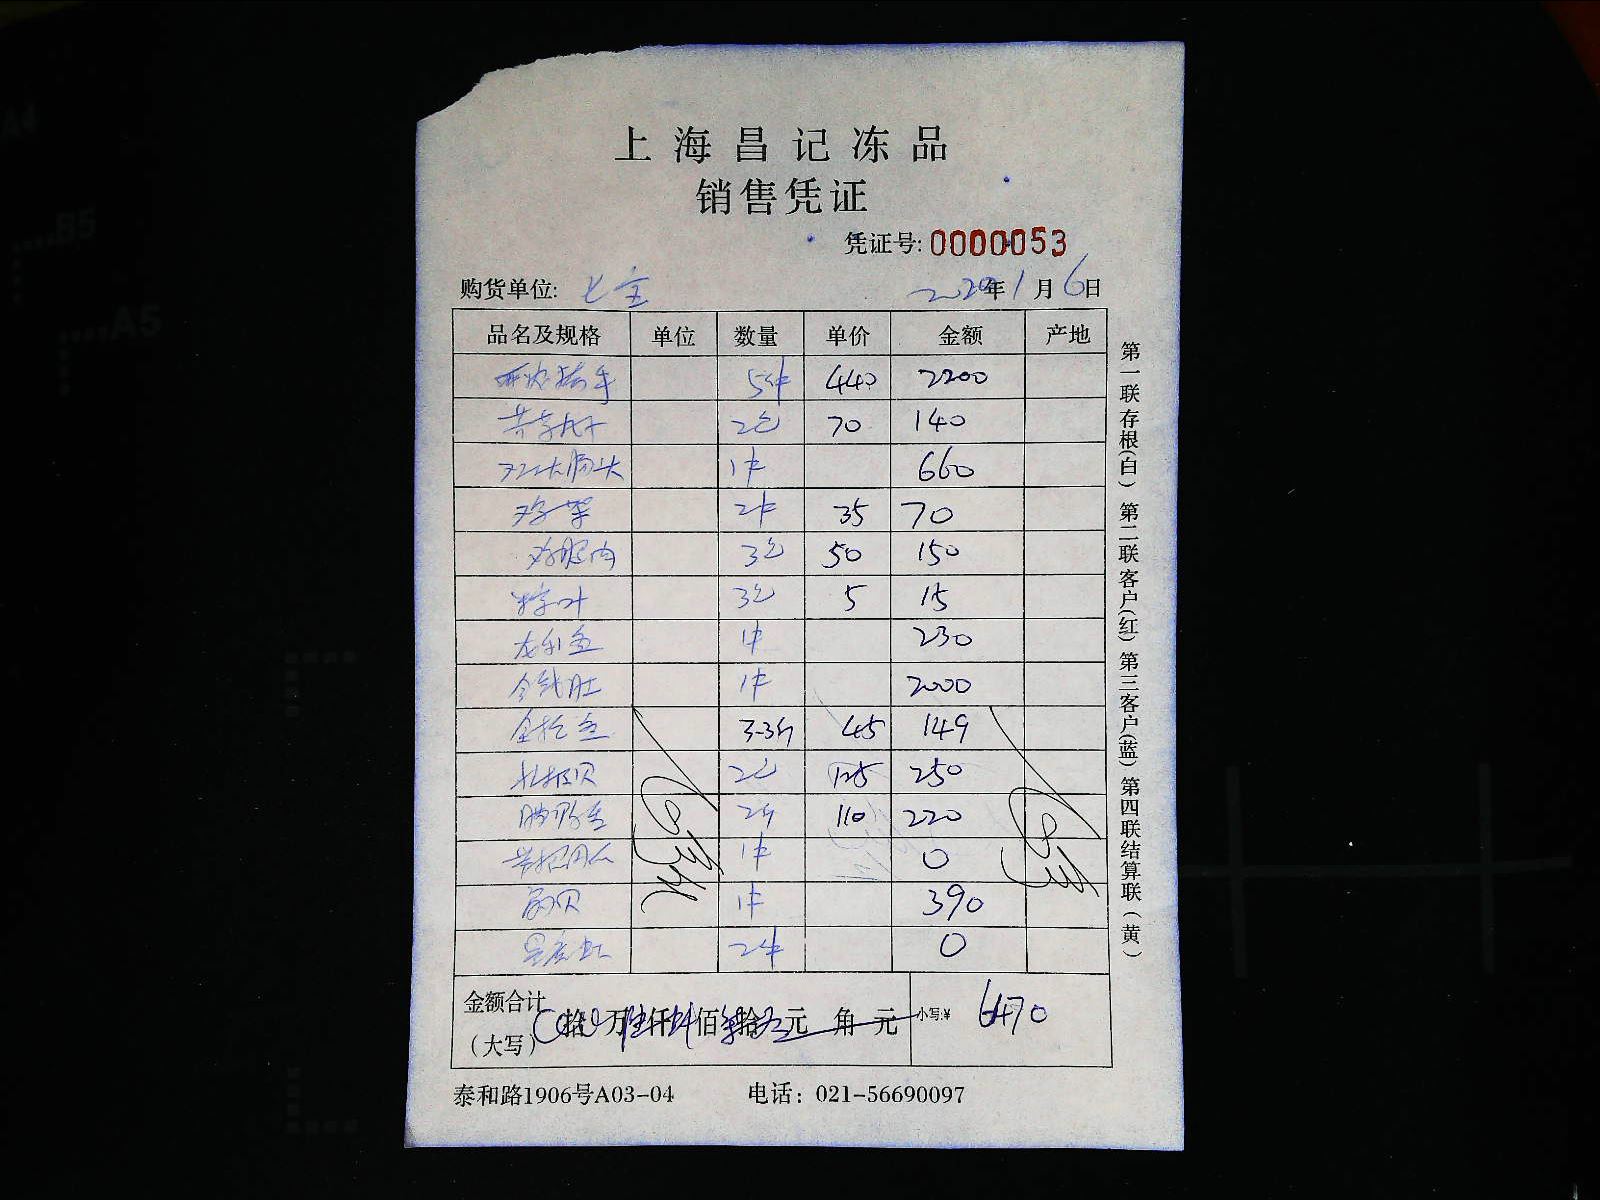 上海昌记冻品
销售凭证
凭证号: 0000053
购货单位: 七宝 2020年1月6日
品名及规格 单位 数量 单价 金额 产地
5件 440 2200
2包 70 140
1件 660
鸡架 2件 35 70
鸡腿肉 3包 50 150
粽字叶 3包 5 15
龙利鱼 1件 230
金钱肚 1件 2000
金枪鱼 3.3斤 45 149
北极贝 2包 125 250
2斤 110 220
1件 0
1件 390
2件 0
金额合计
(大写) 拾 万 仟 佰 拾 元 角 元 小写:¥ 6470
泰和路1906号A03-04 电话: 021-56690097
第一联存根(白) 第二联客户(红) 第三客户(蓝) 第四联结算联(黄)
A4
B5
A5